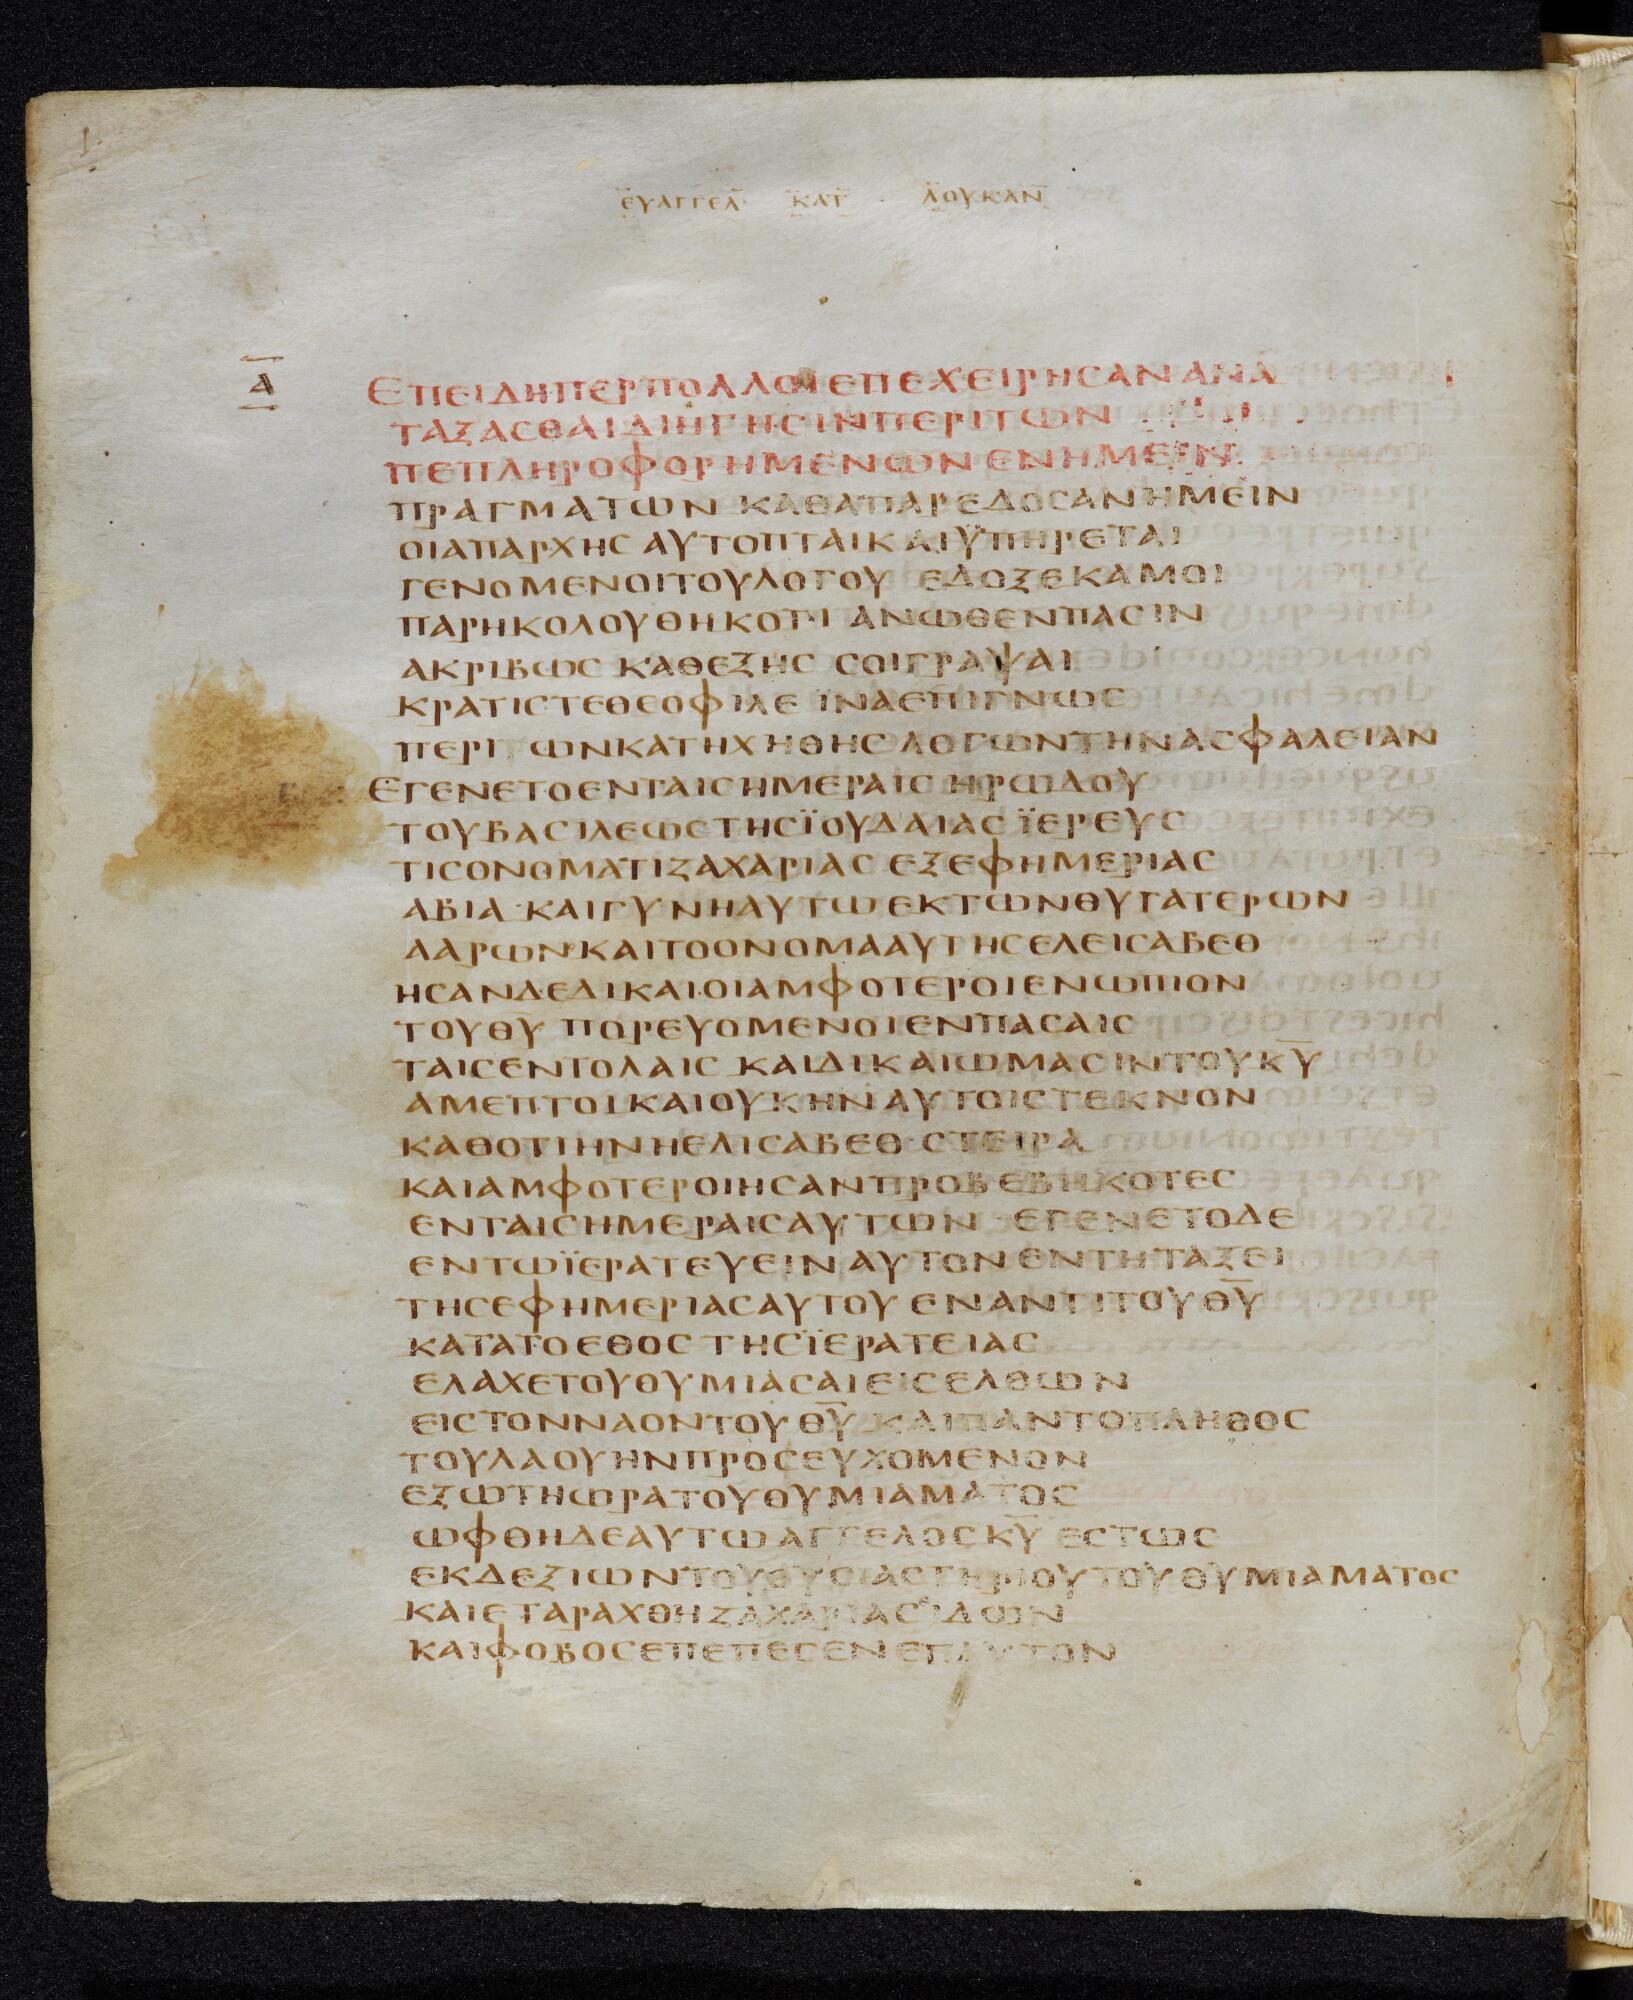 ΕΥΑΓΓΕΛ ΚΑΤ ΛΟΥΚΑΝ
Α
ΕΠΕΙΔΗΠΕΡΠΟΛΛΟΙΕΠΕΧΕΙΡΗСΑΝΑΝΑ
ΤΑΞΑСΘΑΙΔΙΗΓΗСΙΝΠΕΡΙΤΩΝ
ΠΕΠΛΗΡΟΦΟΡΗΜΕΝΩΝΕΝΗΜΕΙΝ
ΠΡΑΓΜΑΤΩΝ ΚΑΘΑΠΑΡΕΔΟСΑΝΗΜΕΙΝ
ΟΙΑΠΑΡΧΗС ΑΥΤΟΠΤΑΙΚΑΙΫΠΗΡΕΤΑΙ
ΓΕΝΟΜΕΝΟΙΤΟΥΛΟΓΟΥ ΕΔΟΞΕΚΑΜΟΙ
ΠΑΡΗΚΟΛΟΥΘΗΚΟΤΙ ΑΝΩΘΕΝΠΑСΙΝ
ΑΚΡΙΒΩС ΚΑΘΕΞΗС СΟΙΓΡΑΨΑΙ
ΚΡΑΤΙСΤΕΘΕΟΦΙΛΕ ΪΝΑΕΠΙΓΝΩС
ΠΕΡΙΤΩΝΚΑΤΗΧΗΘΗС ΛΟΓΩΝΤΗΝΑСΦΑΛΕΙΑΝ
ΕΓΕΝΕΤΟΕΝΤΑΙСΗΜΕΡΑΙС ΗΡΩΔΟΥ
ΤΟΥΒΑСΙΛΕΩСΤΗСΪΟΥΔΑΙΑС ΪΕΡΕΥС
ΤΙСΟΝΟΜΑΤΙΖΑΧΑΡΙΑС ΕΞΕΦΗΜΕΡΙΑС
ΑΒΙΑ·ΚΑΙΓΥΝΗΑΥΤΩ ΕΚΤΩΝΘΥΓΑΤΕΡΩΝ
ΑΑΡΩΝ·ΚΑΙΤΟΟΝΟΜΑΑΥΤΗСΕΛΕΙСΑΒΕΘ
ΗСΑΝΔΕΔΙΚΑΙΟΙΑΜΦΟΤΕΡΟΙΕΝΩΠΙΟΝ
ΤΟΥΘΥ ΠΟΡΕΥΟΜΕΝΟΙΕΝΠΑСΑΙС
ΤΑΙСΕΝΤΟΛΑΙС ΚΑΙΔΙΚΑΙΩΜΑСΙΝΤΟΥΚ̅Υ̅
ΑΜΕΠΤΟΙΚΑΙΟΥΚΗΝΑΥΤΟΙСΤΕΚΝΟΝ
ΚΑΘΟΤΙΗΝΗΕΛΙСΑΒΕΘ·СΤΕΙΡΑ
ΚΑΙΑΜΦΟΤΕΡΟΙΗСΑΝΠΡΟΒΕΒΗΚΟΤΕС
ΕΝΤΑΙСΗΜΕΡΑΙСΑΥΤΩΝ ΕΓΕΝΕΤΟΔΕ
ΕΝΤΩΪΕΡΑΤΕΥΕΙΝΑΥΤΟΝΕΝΤΗΤΑΞΕΙ
ΤΗСΕΦΗΜΕΡΙΑСΑΥΤΟΥ ΕΝΑΝΤΙΤΟΥΘ̅Υ̅
ΚΑΤΑΤΟΕΘΟС ΤΗСΪΕΡΑΤΕΙΑС
ΕΛΑΧΕΤΟΥΘΥΜΙΑСΑΙΕΙСΕΛΘΩΝ
ΕΙСΤΟΝΝΑΟΝΤΟΥΘ̅Υ̅ ΚΑΙΠΑΝΤΟΠΛΗΘΟС
ΤΟΥΛΑΟΥΗΝΠΡΟСΕΥΧΟΜΕΝΟΝ
ΕΞΩΤΗΩΡΑΤΟΥΘΥΜΙΑΜΑΤΟС
ΩΦΘΗΔΕΑΥΤΩΑΓΓΕΛΟСΚ̅Υ̅ ΕСΤΩС
ΕΚΔΕΞΙΩΝΤΟΥΘΥСΙΑСΤΗΡΙΟΥΤΟΥΘΥΜΙΑΜΑΤΟС
ΚΑΙΕΤΑΡΑΧΘΗΖΑΧΑΡΙΑСΪΔΩΝ
ΚΑΙΦΟΒΟСΕΠΕΠΕСΕΝΕΠΑΥΤΟΝ